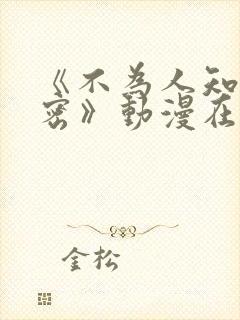 《不為人知
密》動漫在
金松